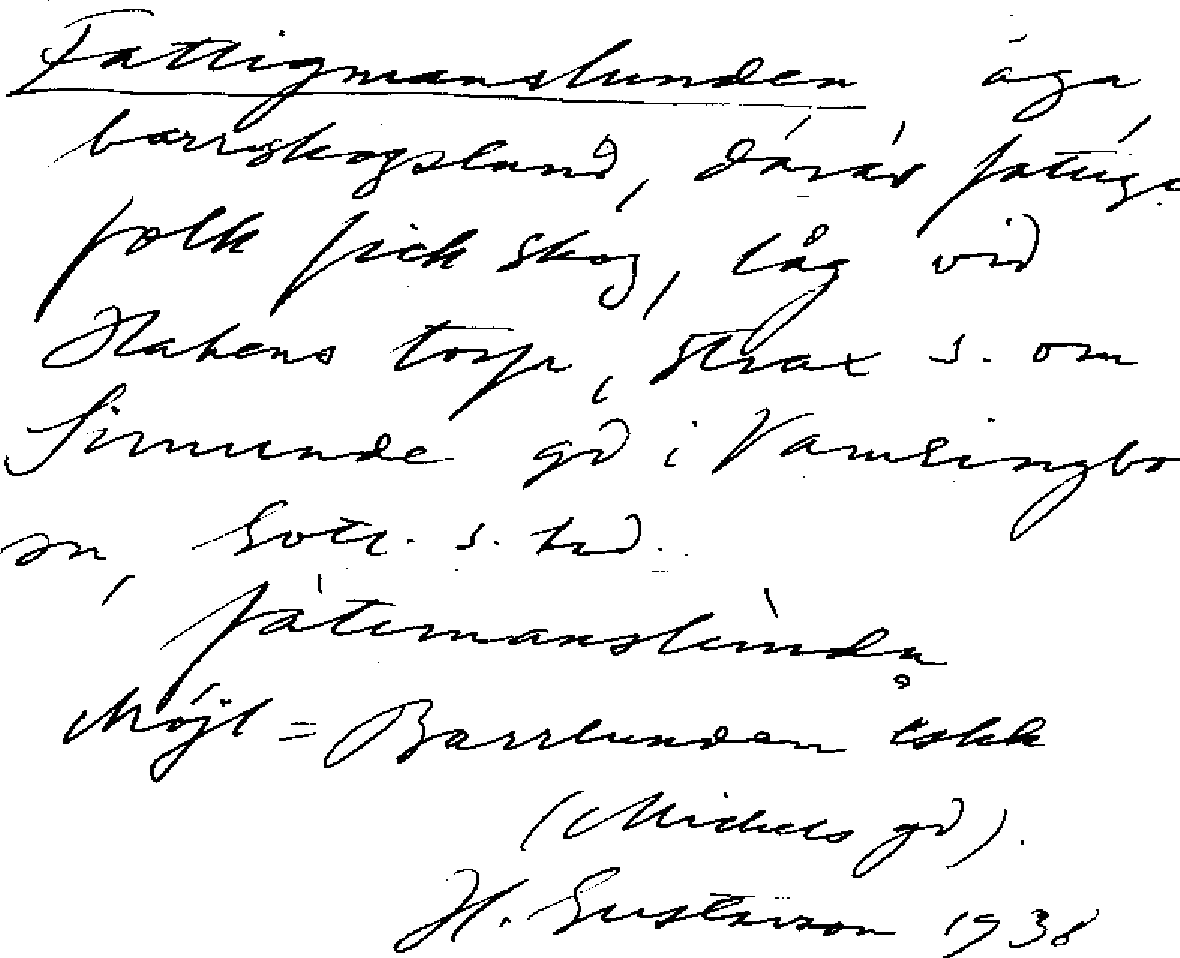 Fattigmanslunden äga
barrskogsland, därär fattiga
folk fick skog, låg vid
Hakens torp, strax s. om
Simunde gd i Vamlingbo
sn, Gotl. s. hd.
fàtimanslùndn
Möjl = Barrlunden
(Mickels gd).
H. Gustavson 1938